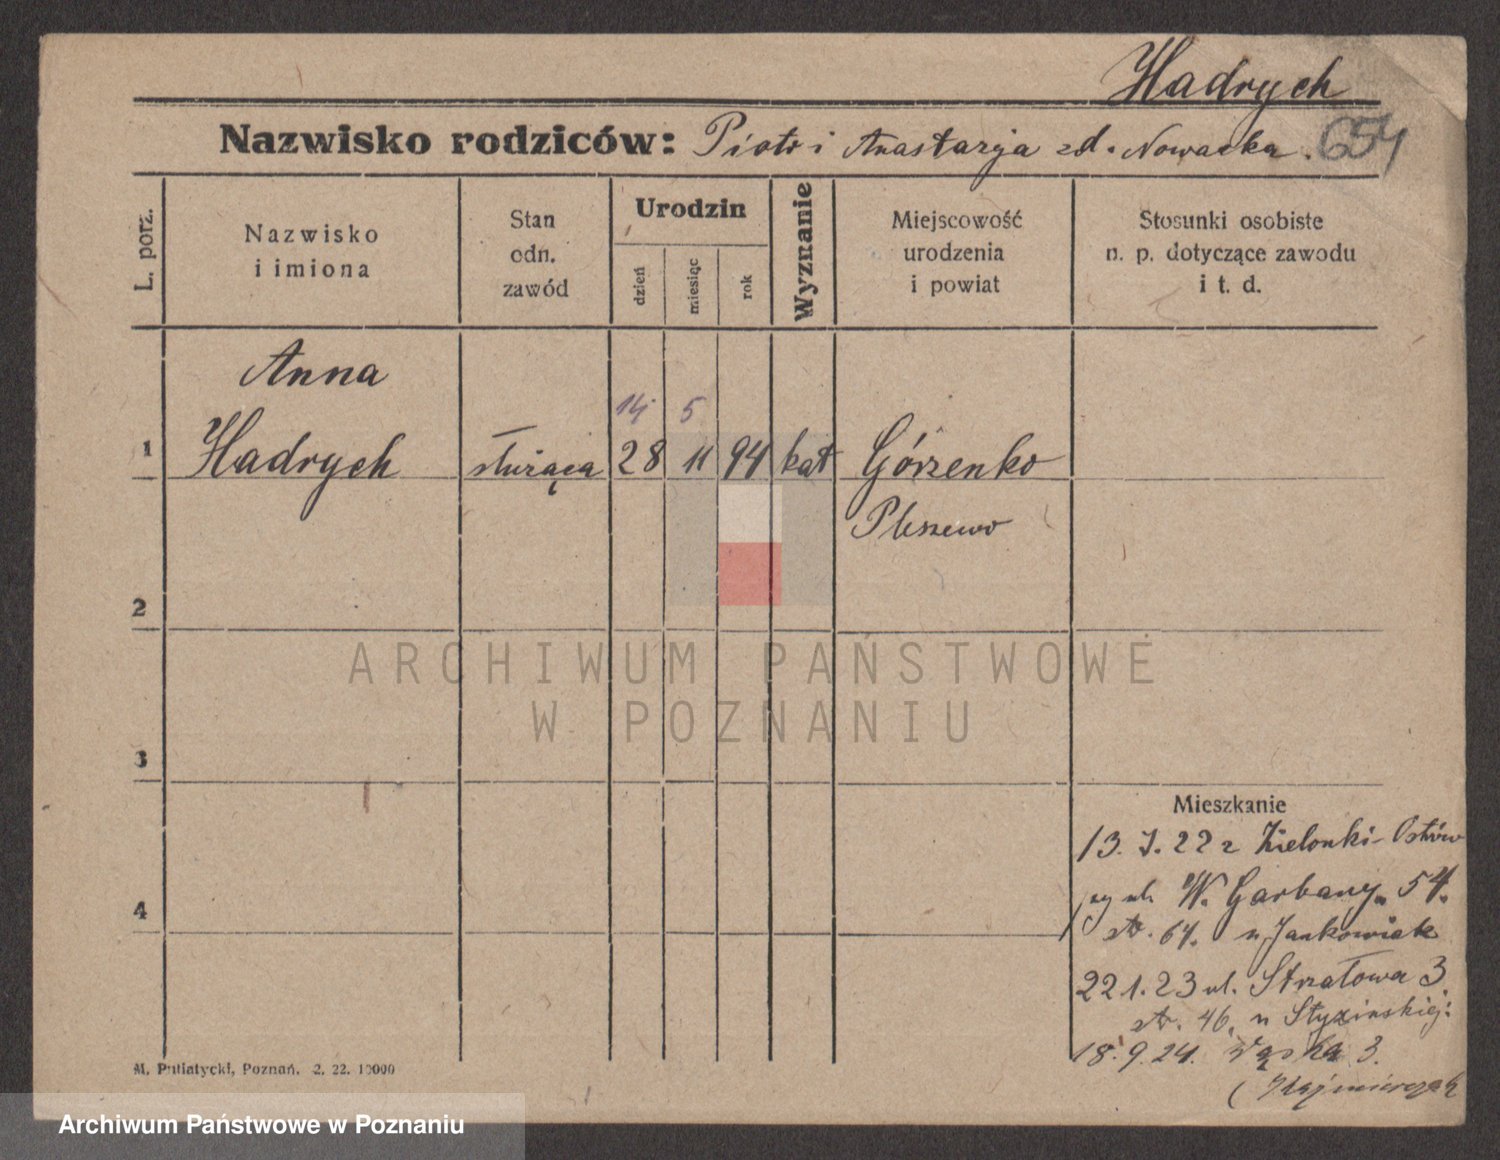 Hadrych
Nazwisko rodziców: Piotr i Anastazja zd. Nowacka. 654
L. porz.
Nazwisko
i imiona
Stan
odn.
zawód
Urodzin
dzień
miesiąc
rok
Wyznanie
Miejscowość
urodzenia
i powiat
Stosunki osobiste
n. p. dotyczące zawodu
i t. d.
Anna
14 5
1 Hadrych służąca 28 11 94 kat Górzenko
Pleszewo
2
ARCHIWUM PAŃSTWOWE
W POZNANIU
3
Mieszkanie
13. I. 22 z Zielonki-Ostrów
ul. W. Garbary 54.
str. 64. u Jankowiak
4
22 1. 23 ul. Strzałowa 3.
str. 46, u
18. 9. 24. Wąska 3.
(Kaźmierczak
M. Putiatycki, Poznań. 2. 22. 10000
Archiwum Państwowe w Poznaniu